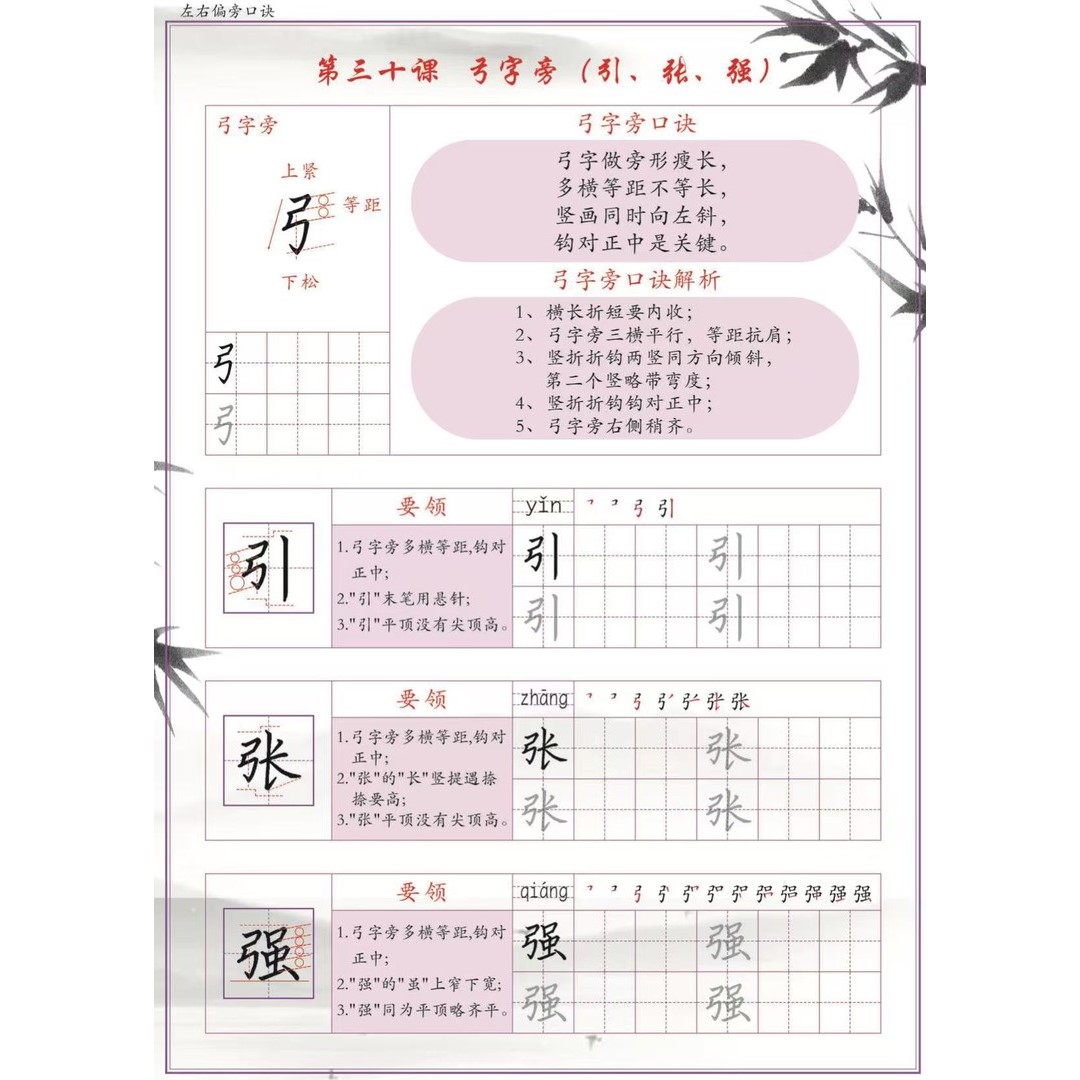 左右偏旁口诀
第三十课 弓字旁（引、张、强）
弓字旁
上紧
弓
等距
下松
弓
弓
弓字旁口诀
弓字做旁形瘦长，
多横等距不等长，
竖画同时向左斜，
钩对正中是关键。
弓字旁口诀解析
1、横长折短要内收；
2、弓字旁三横平行，等距抗肩；
3、竖折折钩两竖同方向倾斜，
第二个竖略带弯度；
4、竖折折钩钩对正中；
5、弓字旁右侧稍齐。
引
要领
1.弓字旁多横等距,钩对
正中;
2."引"末笔用悬针;
3."引"平顶没有尖顶高。
yǐn
弓 引
引 引
引 引
张
要领
1.弓字旁多横等距,钩对
正中;
2."张"的"长"竖提遇捺
捺要高;
3."张"平顶没有尖顶高。
zhāng
弓 张
张 张
张 张
强
要领
1.弓字旁多横等距,钩对
正中;
2."强"的"虽"上窄下宽;
3."强"同为平顶略齐平。
qiáng
弓 强
强 强
强 强